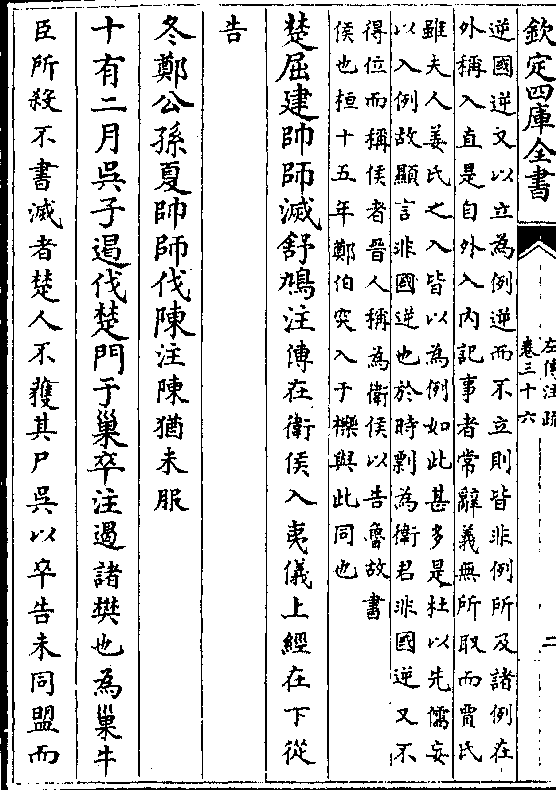 欽定四庫全書
左傳注疏
卷三十六
二
逆國逆又以立為例逆而不立則皆非例所及諸例在
外稱入直是自外入內記事者常辭義無所取而賈氏
雖夫人姜氏之入皆以為例如此甚多是杜以先儒妄
以入例故顯言非國逆也於時剽為衛君非國逆又不
得位而稱侯者晉人稱為衛侯以告魯故書
侯也桓十五年鄭伯突入于櫟與此同也
楚屈建帥師滅舒鳩注傳在衛侯入夷儀上經在下從
告
冬鄭公孫夏帥師伐陳注陳猶未服
十有二月吳子遏伐楚門于巢卒注遏諸樊也為巢牛
臣所殺不書滅者楚人不獲其尸吳以卒告未同盟而